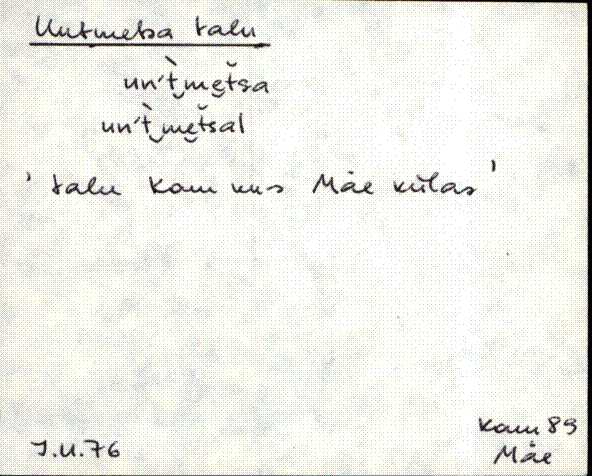 Untmetsa talu
un't̀metsa
un't̀metsal
' talu Kam kus Mäe külas '
J.U.76
Kam 89
Mäe